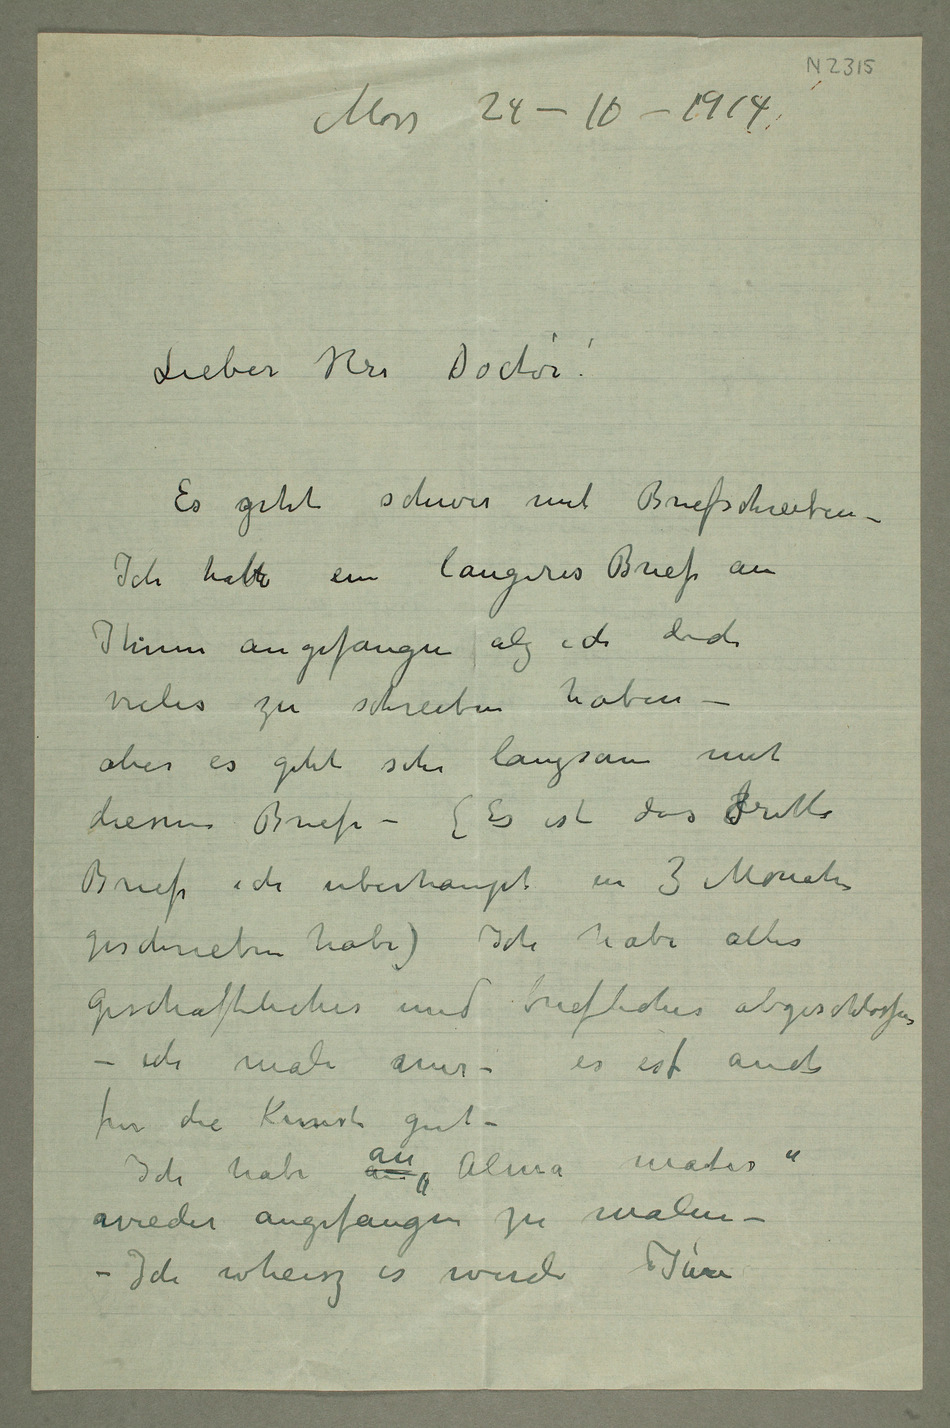 N 2315
Moss 24 – 10 – 1914.
Lieber Herr Doctor!
Es geht schwer mit Briefschreiben –
Ich hatte ein langeres Brief an
Ihnen angefangen alz ich doch
vieles zu schreiben haben –
aber es geht sehr langsam mit
diesem Brief – (Es ist das dritte
Brief ich uberhaupt in 3 Monate
geschrieben habe) Ich habe alles
geschaftliches und briefliches abgeschlossen
– ich male nur – es ist auch
fur die Kunst gut –
Ich habe an „Alma mater“
wieder angefangen zu malen –
– Ich wheisz es wurde